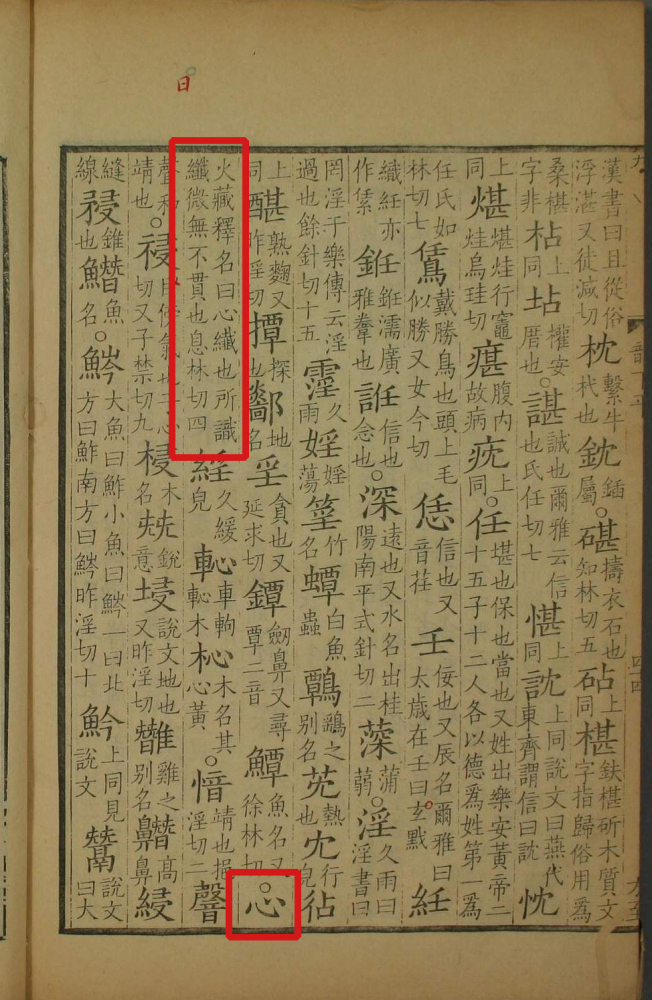 漢書曰且從俗浮湛又徒減切枕繫牛杙也鈂鍤屬○碪擣衣石也知林切五砧上同椹鈇椹斫木質文字指歸俗用爲
桑椹字非枮上同坫權安厝也○諶誠也爾雅云信也氏任切七愖上同訦上同說文曰燕代東齊謂信曰訦忱
上同煁煁烓行竈烓烏珪切㾕腹內故病上同○任堪也保也當也又姓出樂安黃帝二十五子十二人各以德爲姓第一爲
任氏如林切七戴勝鳥也頭上毛似勝又女今切恁信也又音荏壬佞也又辰名爾雅曰太歲在壬曰玄黓紝
織紝亦作銋銋濡廣雅韏也信也念也○深遠也又水名出桂陽南平式針切二蒲蒻○淫久雨曰淫書曰
罔淫于樂傳云淫過也餘針切十五霪久雨婬婬蕩竹名蟫白魚蟲鷣鷂之別名熱也冘行皃
上同熟麴又昨淫切撢探也鄩地名㸒貪也又延求切鐔劒鼻又尋覃二音鱏魚名又徐林切○心
火藏釋名曰心纖也所識纖微無不貫也息林切四久緩皃車軥軣木杺木名其心黃○愔靖也挹淫切二
聲和靖也○祲日傍氣也子心切又子禁切九梫木名兓銳意埐說文地也又昨淫切雞之別名高鼻綅
縫線錐也鱚魚名○䰼大魚曰鮓小魚曰䰼一曰北方曰鮓南方曰䰼昨淫切十魿上同見說文說文曰大